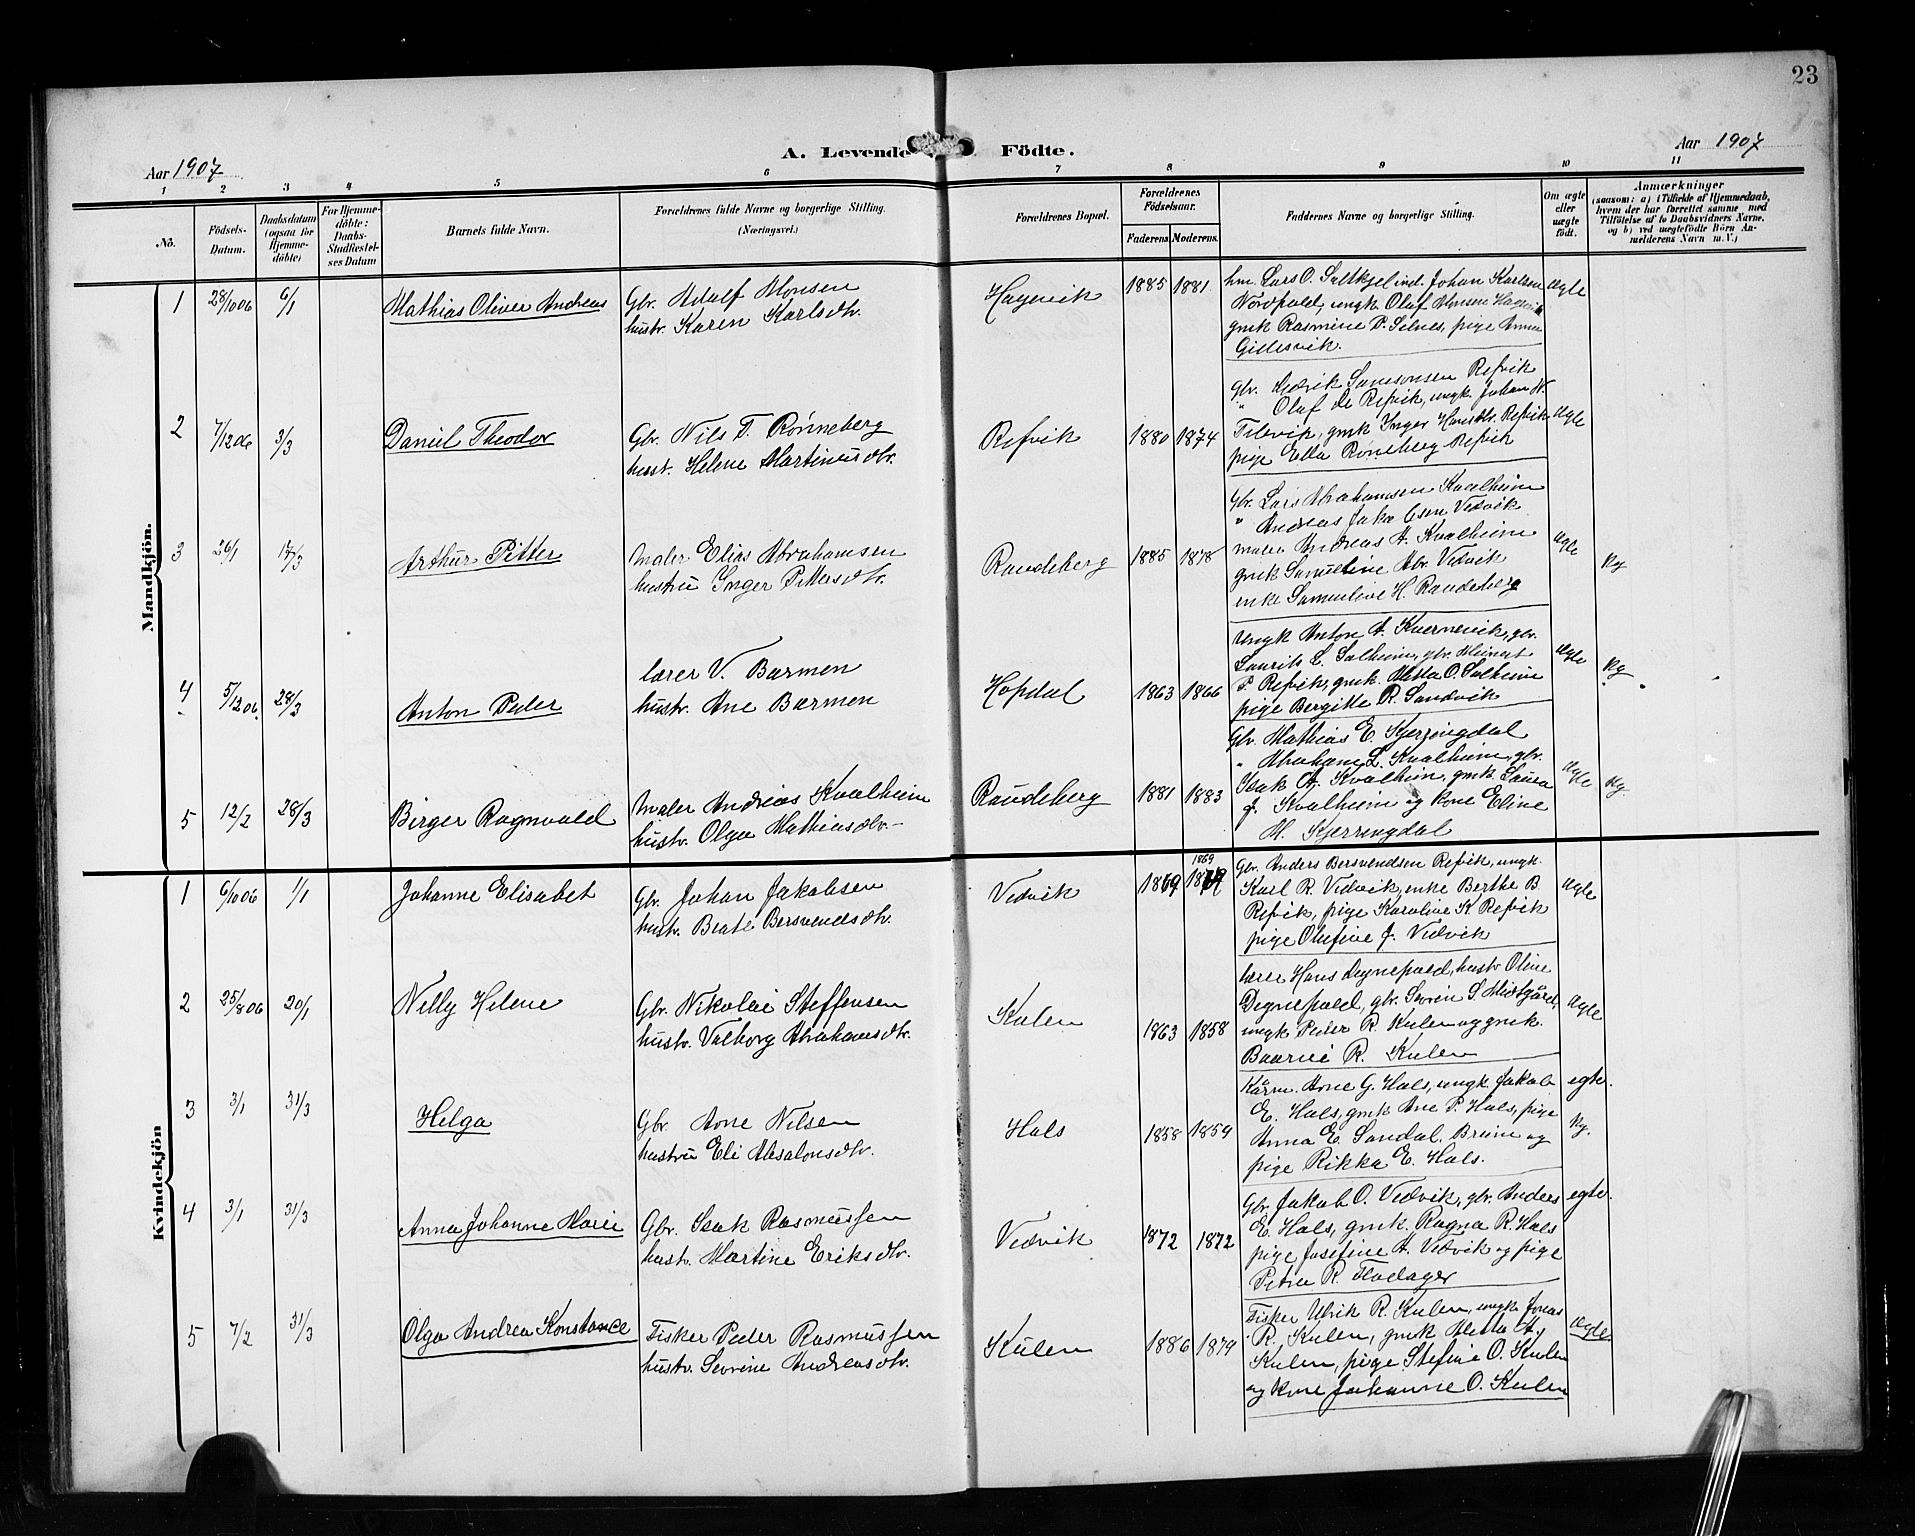 23
A. Levende Födte.
Aar 1907
Aar 1907
1 2 3 4 5 6 7 8 9 10 11
No.
Födsels-Datum.
Daabsdatum (ogsaa for Hjemmedöbte)
For Hjemmedöbte: Daabs-Stadfæstelses Datum
Barnets fulde Navn.
Forældrenes fulde Navne og borgerlige Stilling.
(Næringsvei.)
Forældrenes Bopæl.
Forældrenes Födselsaar.
Faderens. Moderens.
Faddernes Navne og borgerlige Stilling.
Om ægte eller uægte födt.
Anmærkninger
(saasom: a) i Tilfælde af Hjemmedaab,
hvem der har forrettet samme med
Tilföielse af to Daabsvidners Navne.
og b) ved uægtefödte Börn An-
melderens Navn m. V.)
Mandkjön.
1 28/10 06 6/1 Mathias Oliver Andreas
Gbr. Adolf Monsen
hustr. Karen Karlsdtr.
Hagevik 1885 1881
hm. Lars O. Saltkjelind. Johan Karlsen
Nordpald, ungk Olaf Monsen Hagevik
gmk Rasmine P. Silnes, pige Anna
Gillesvik.
Ægte
2 7/12 06 3/3 Daniel Theodor
Gbr. Nils T. Rønneberg
hustr. Helene Martinusdtr.
Refvik 1880 1874
Gbr. Hedvik Samsonsen Refvik
" Olaf de Refvik, ungk Johan N.
Tilevip, gmk Ynger Hansdtr. Refvik
pige Ella Røneberg Refvik
Ægte
3 26/1 17/3 Arthur Pitter
Maler Elias Abrahamsen
hustru Ynger Pittersdtr.
Raudeberg 1885 1878
Gbr. Lars Abrahamsen Kvalheim
" Andreas Jakobsen Vedvik
maler Andreas A. Kvalheim
gmk Samueline Abr. Vedvik
enke Samueline H. Raudeberg
Ægte Rg
4 5/12 06. 28/3 Anton Peder
lærer V. Barmen
hustr. Ane Barmen
Hopdal 1863 1866
Ungk Anton A. Kvernevik, gbr.
Laurits L. Salheim, gbr. Meinert
P. Refvik, gmk. Metta O. Salheim
pige Bergitte R. Sandvik
Ægte Rg
5 12/2 28/3 Birger Ragnvald
Maler Andreas Kvalheim
hustr. Olga Mathiasdtr.
Raudeberg 1881 1883
Gbr. Mathias E. Kjerringdal
" Abraham L. Kvalheim, gbr.
Isak A. Kvalheim, gmk Laura
J. Kvalheim og kone Eline
M. Kjerringdal
Ægte Rg.
Kvindekjön
1 6/10 06 1/1 Johanne Elisabet
Gbr. Johan Jakobsen
hustr. Beate Bersvendsdtr.
Vedvik 1869 1869
Gbr. Anders Bersvendsen Refvik, ungk.
Karl R. Vedvik, enke Berthe B.
Refvik, pige Karoline K. Refvik
pige Olufine J. Vedvik
Ægte
2 25/8 06 20/1 Nelly Helene
Gbr. Nikolai Steffensen
hustr. Valborg Abrahamsdtr.
Kulen 1863 1858
Lærer Hans Degnepold, hustr. Oline
Degnepold, gbr. Severin S. Midtgård,
ungk Peder R. Kulen og gmk.
Baarni R. Kulen
Ægte
3 3/1 31/3 Helga
Gbr. Arne Nilsen
hustru Eli Absalonsdtr.
Hals 1858 1859
Kårm. Arne G. Hals, ungk. Jakob
E. Hals, gmk Ane P. Hals, pige
Anna E. Sandal, Brim og
pige Rikka E. Hals.
egte. Rg.
4 3/1 31/3 Anna Johanne Marie
Gbr. Isak Rasmussen
hustr. Martine Eriksdtr.
Vedvik 1872 1872
Gbr. Jakob O. Vedvik, gbr. Anders
E. Hals, gmk. Ragna R. Hals
pige Josefine A. Vedvik og pige
Petra R. Flodager
egte.
5 7/2 31/3 Olga Andrea Konstance
Fisker Peder Rasmussen
hustr. Severine Andreasdtr.
Kulen 1886 1879
Fisker Ulrik R. Kulen, ungk Jonas
R. Kulen, gmk Metta A.
Kulen, pige Stefine O. Kulen
og kone Johanne O. Kulen
Ægte